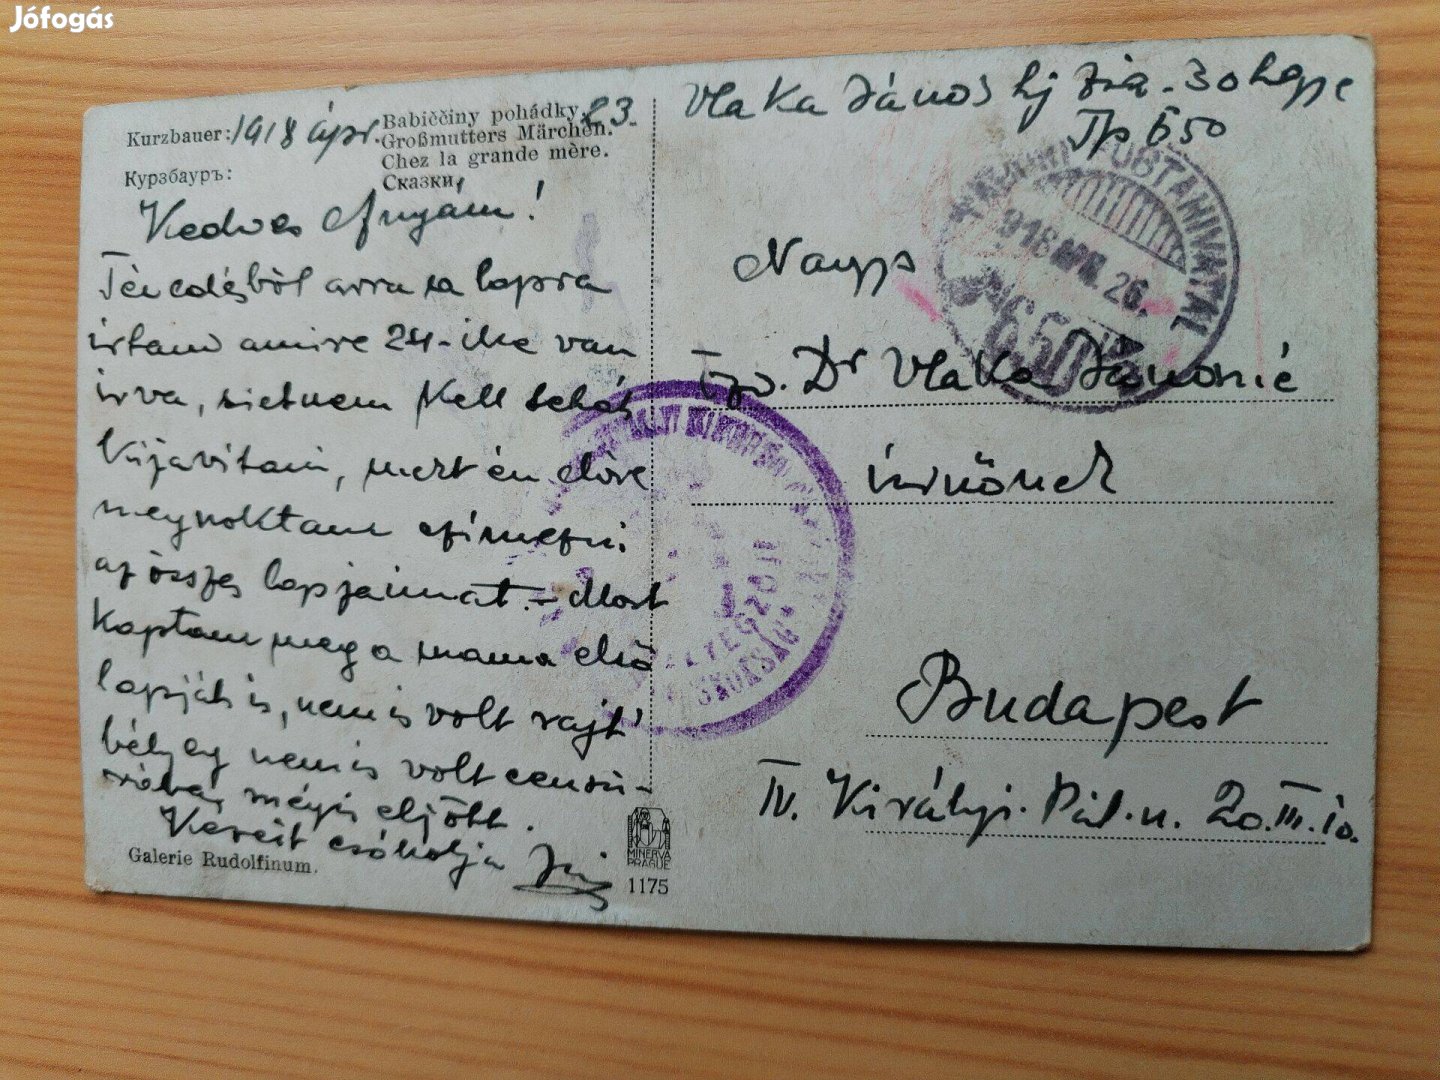 Jófogás
Kurzbauer: 1918 ápr. 23.
Курзбауръ:
Babiččiny pohádky.
Großmutters Märchen.
Chez la grande mère.
Сказки.
Kedves Anyám!
Tévedésből arra a lapra
írtam amire 24-ike van
írva, sietnem kell tehát
kijavítani, mert én előre
megszoktam címezni
az összes lapjaimat. – Most
kaptam meg a mama első
lapját is, nem is volt rajt'
bélyeg nem is volt cenzú-
rába, mégis eljött.
Kezeit csókolja
Galerie Rudolfinum.
MINERVA
PRAGUE
1175
Vlaka János hj
Tp 650
TÁBORI POSTAHIVATAL
918 ÁPR. 26.
650
Nagys
Özv. Dr Vlaka Jánosné
úrnőnek
Budapest
IV. Királyi. Pál. u. 20. III. 10.